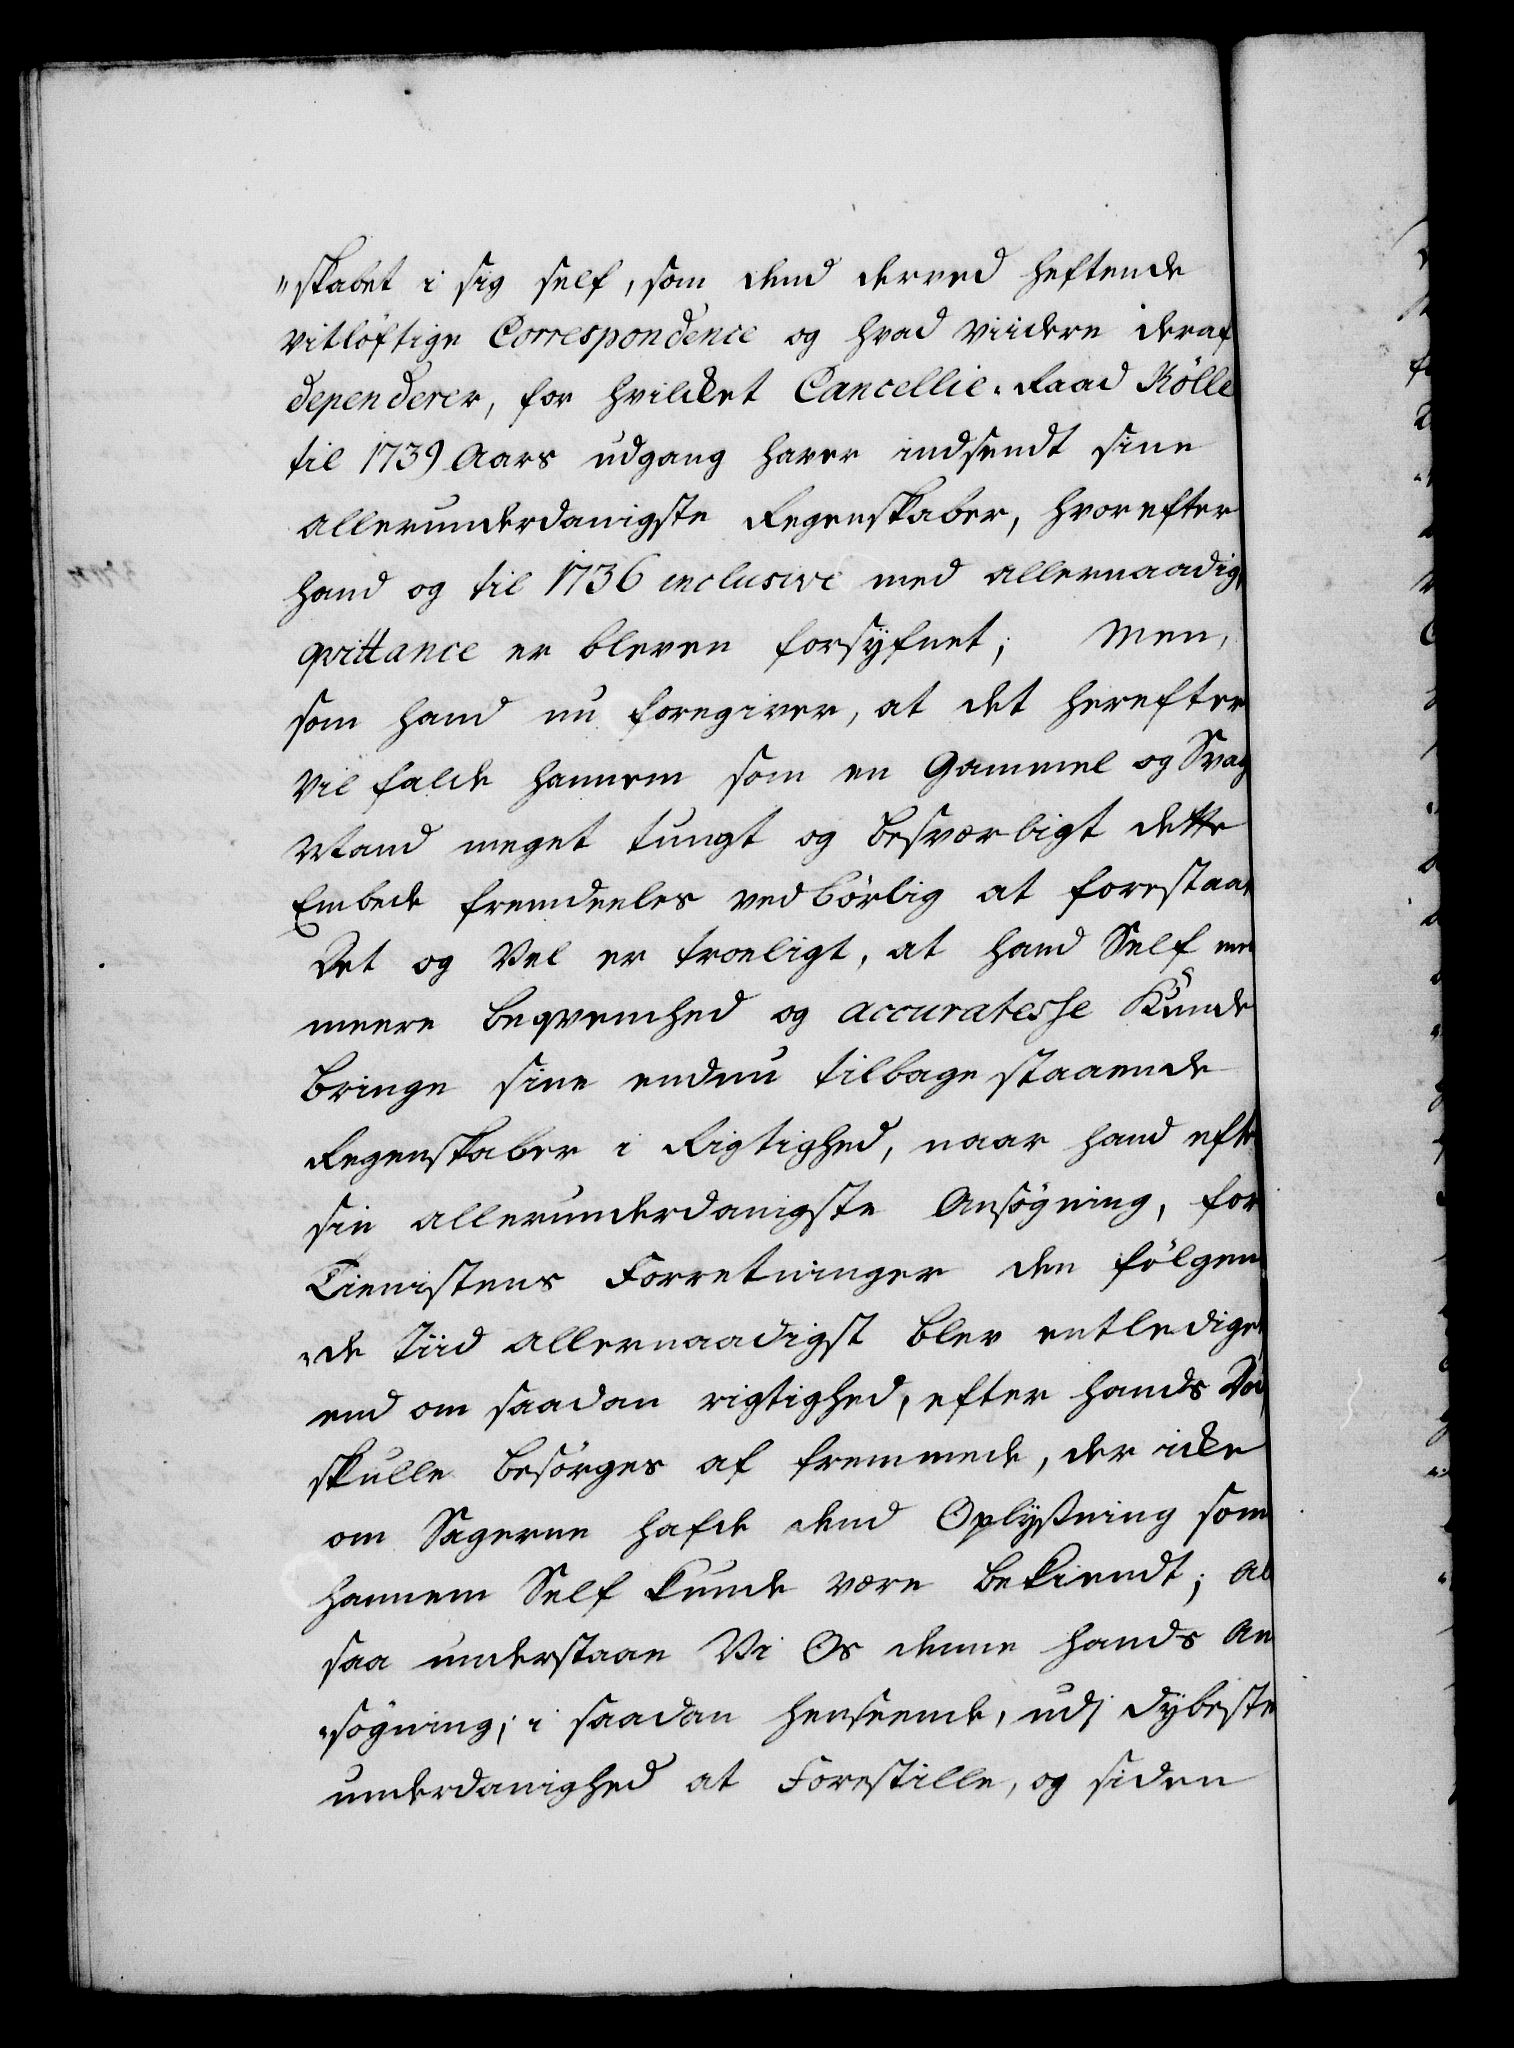 "skabet i sig self, som dend derved heftende
vitløftige Correspondence og hvad viidere deraf
dependerer, for hvilket Cancellie-Raad Kølle
til 1739 Aars udgang haver indsendt sine
allerunderdanigste Regenskaber, hvorefter
hand og til 1736 inclusive med allernaadig,
qvittance er bleven forsÿfnet; Men,
som hand nu foregiver, at det herefter
vil falde hannem som en Gammel og Svag
Mand meget tungt og besværligt dette
Embede fremdeeles vedbørlig at forestaae
Det og Vel er troeligt, at hand Self med
meere beqvemhed og accuratesse Kunde
bringe sine endnu tilbage staaende
Regenskaber i Rigtighed, naar hand efter
sin allerunderdanigste Ansøgning, for
Tienistens Forretninger den følgen
"de Tiid allernaadigst blev entlediget
end om saadan rigtighed, efter hands Død
skulle besørges af fremmede, der icke
om Sagerne hafde dend Oplÿsning som
hannem Self kunde være bekiendt; Al
saa understaae Vi Os denne hands An
"søgning, i saadan henseende, udj dÿbeste
underdanighed at Forestille, og siden